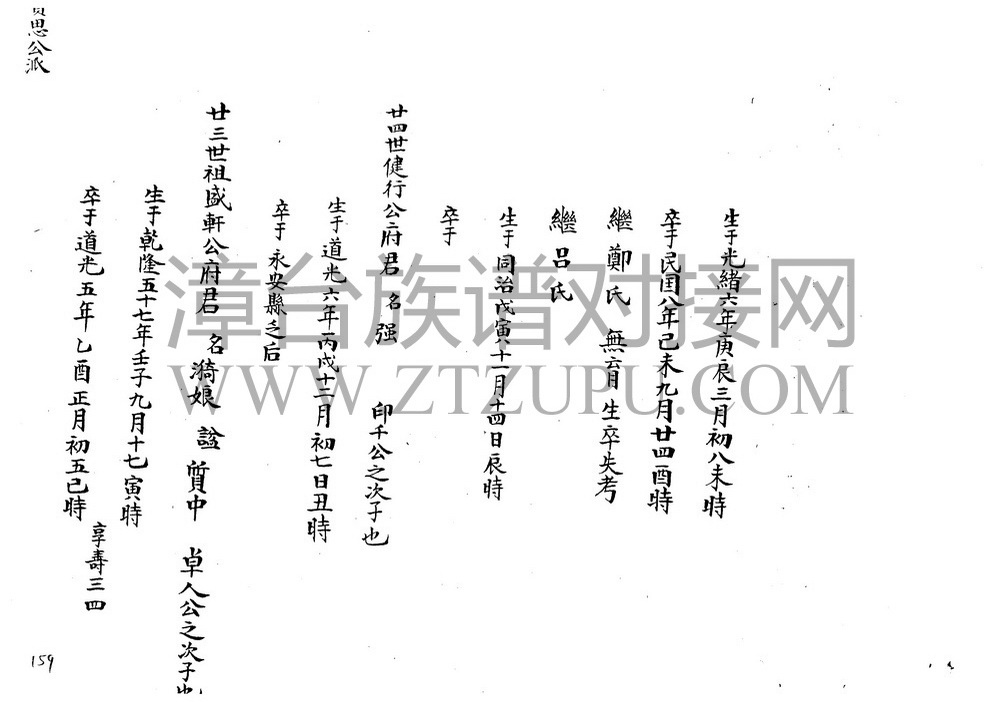 生于光緒六年庚辰三月初八未時
卒于民国八年己未九月廿四酉時
繼 鄭氏 無育 生卒失考
繼 呂氏
生于同治戊寅十一月十四日辰時
卒于
廿四世健行公府君 名 强 印千公之次子也
生于道光六年丙戌十二月初七日丑時
卒于永安縣之后
廿三世祖盛軒公府君 名漪娘 諡 質中 卓人公之次子也
生于乾隆五十七年壬子九月十七寅時
卒于道光五年乙酉正月初五巳時 享壽三四
思公派
159
漳台族谱对接网
WWW.ZTZUPU.COM